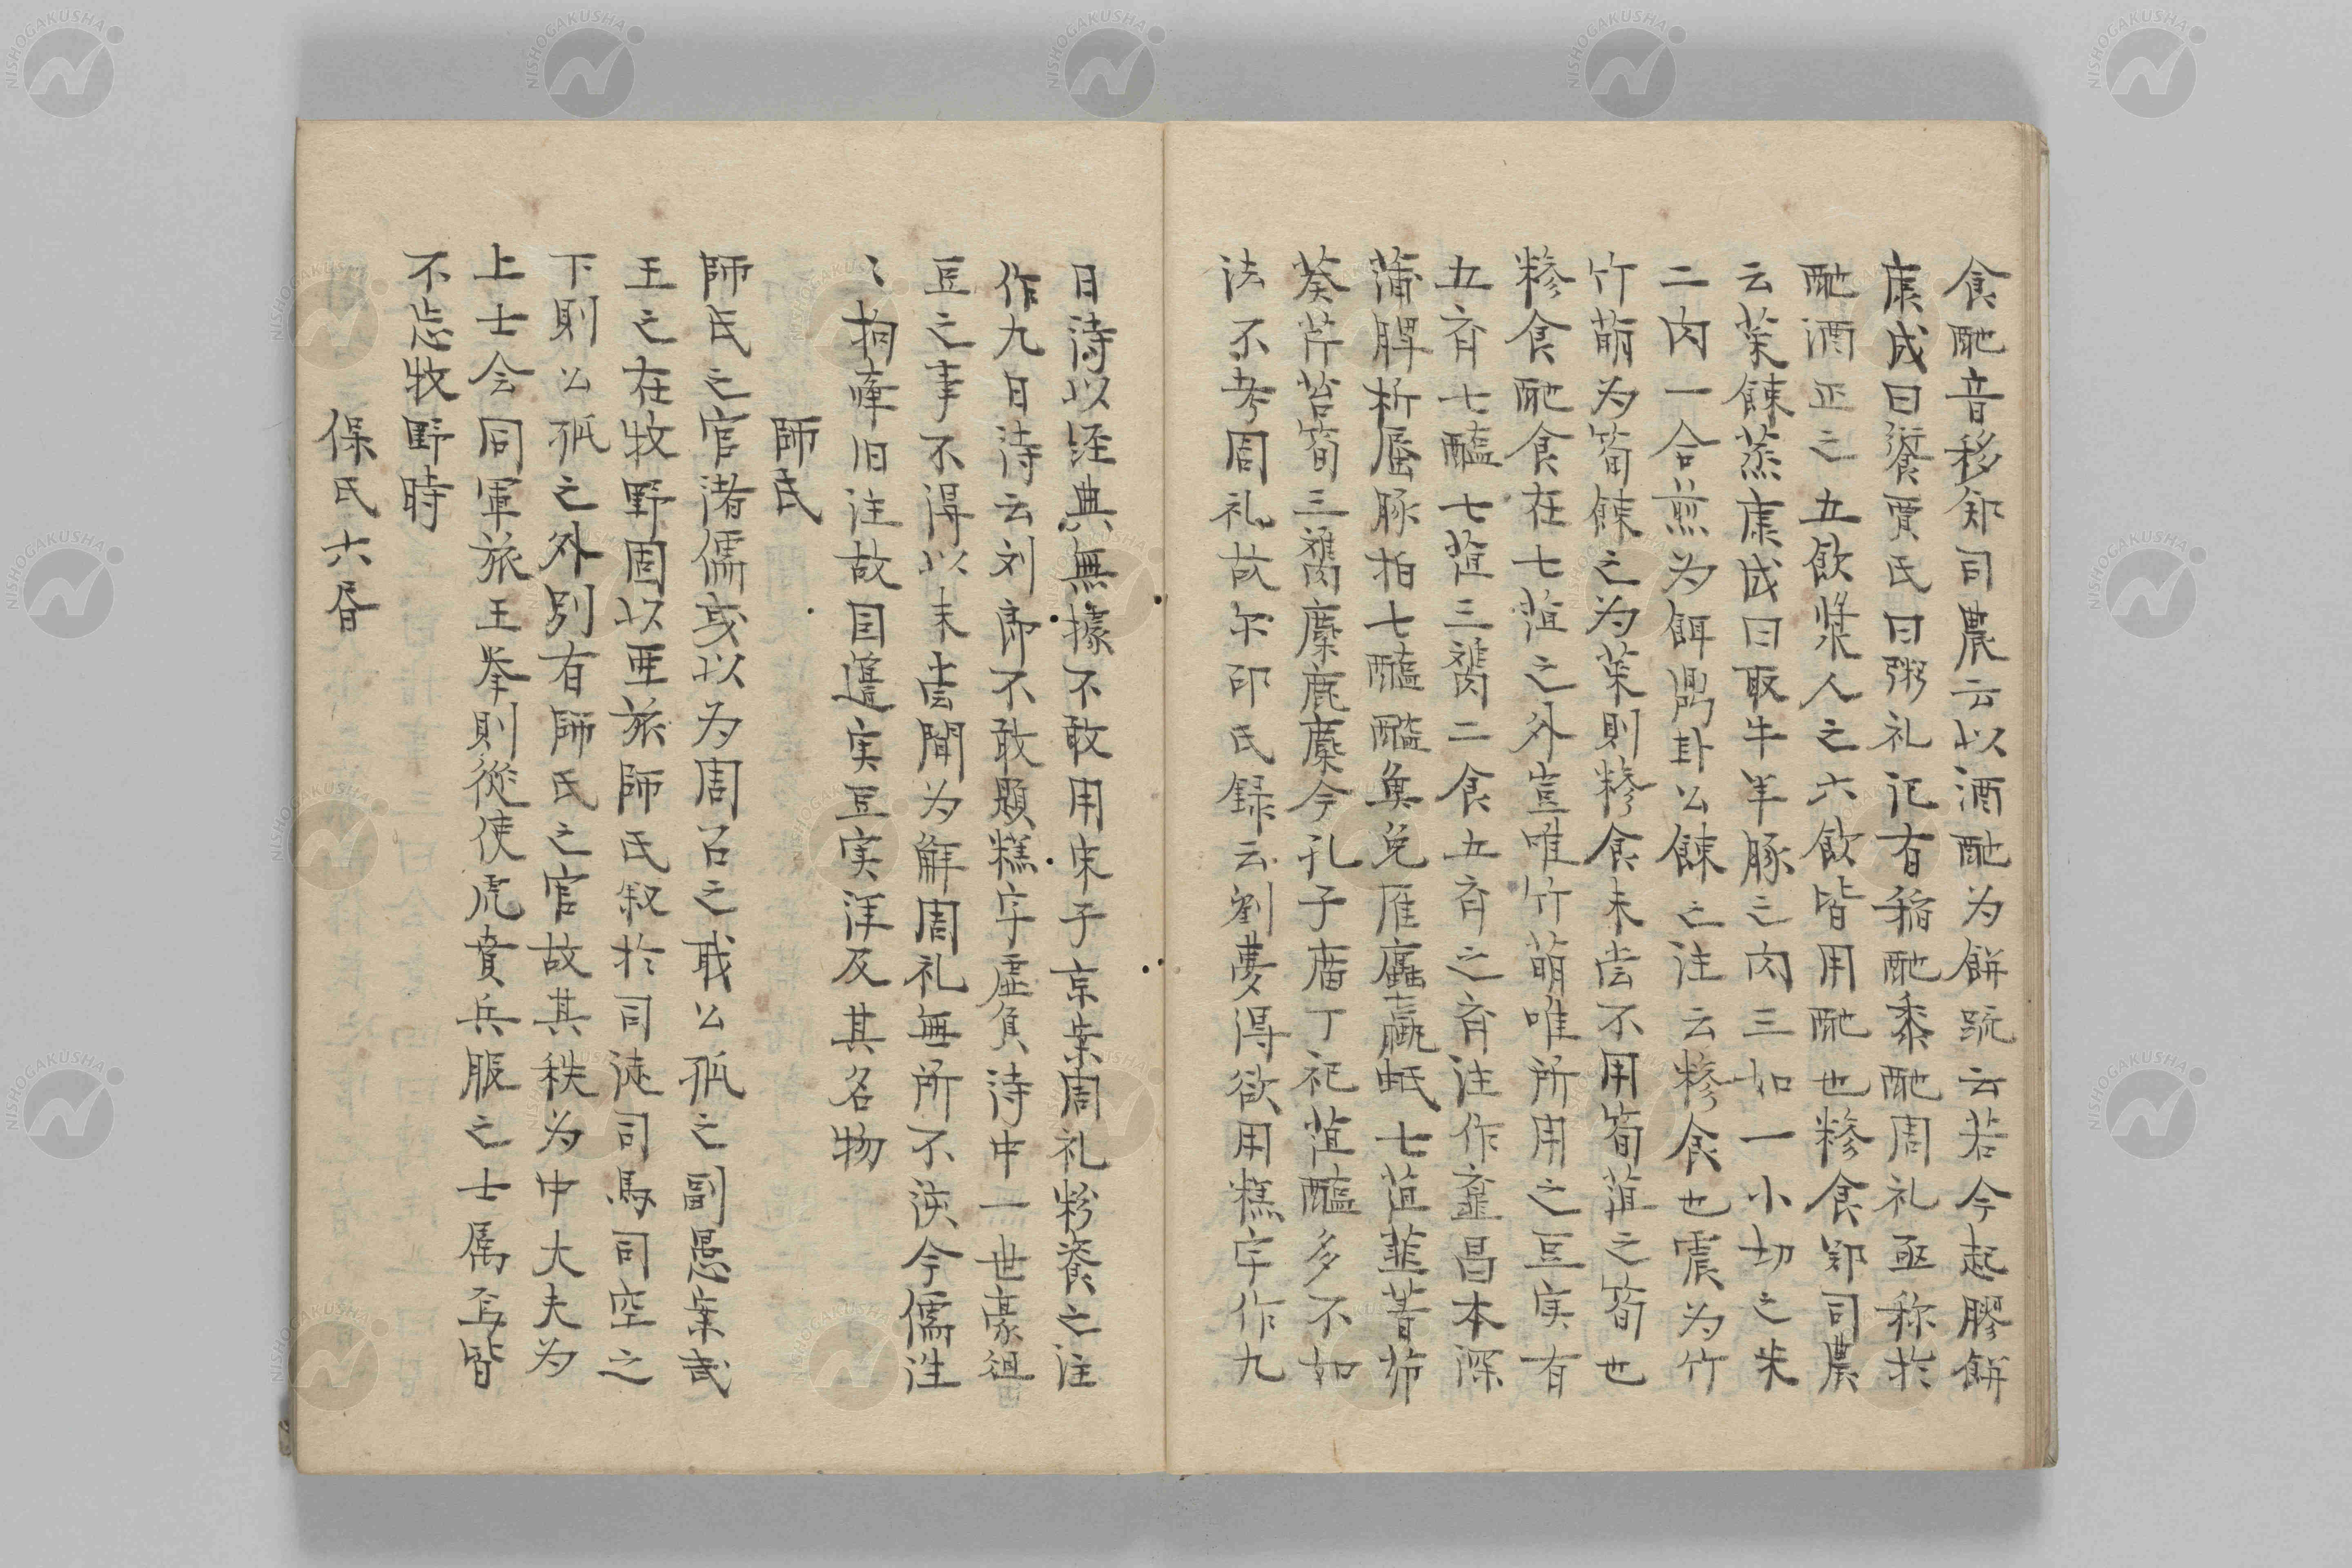 食酏音移郑司農云以酒酏为餅疏云若今起膠餅
康成曰餈賈氏曰粥礼记有稲酏黍酏周礼亟称於
酏酒正之五飲漿人之六飲皆用酏也糝食郑司農
云菜餗蒸康成曰取牛羊豚之肉三如一小切之米
二肉一合煎为餌鼎卦公餗之注云糝食也震为竹
竹萌为筍餗之为菜則糝食未尝不用筍菹之筍也
糝食酏食在七菹之外豈唯竹萌唯所用之豆実有
五齐七醢七菹三臡二食五齐之齐注作齏昌本深
蒲脾析蜃豚拍七醢醓魚兔雁蠯蠃蚳七菹韮菁茆
葵芹苔筍三臡麋鹿麇今孔子庿丁祀菹醢多不如
法不考周礼故尔邵氏録云劉夢得欲用糕字作九
日诗以经典無據不敢用宋子京案周礼粉餈之注
作九日诗云刘郎不敢題糕字虚負诗中一世豪俎
豆之事不得以未尝聞为解周礼無所不该今儒泩
〻拘牵旧注故国籩実豆実详及其名物
師氏
師氏之官诸儒或以为周召之职公孤之副愚案武
王之在牧野固以亜旅師氏叙於司徒司馬司空之
下則公孤之外別有師氏之官故其秩为中大夫为
上士会同軍旅王举則從使虎賁兵服之士属焉皆
不忘牧野時
保氏六昏
NISHOGAKUSHA